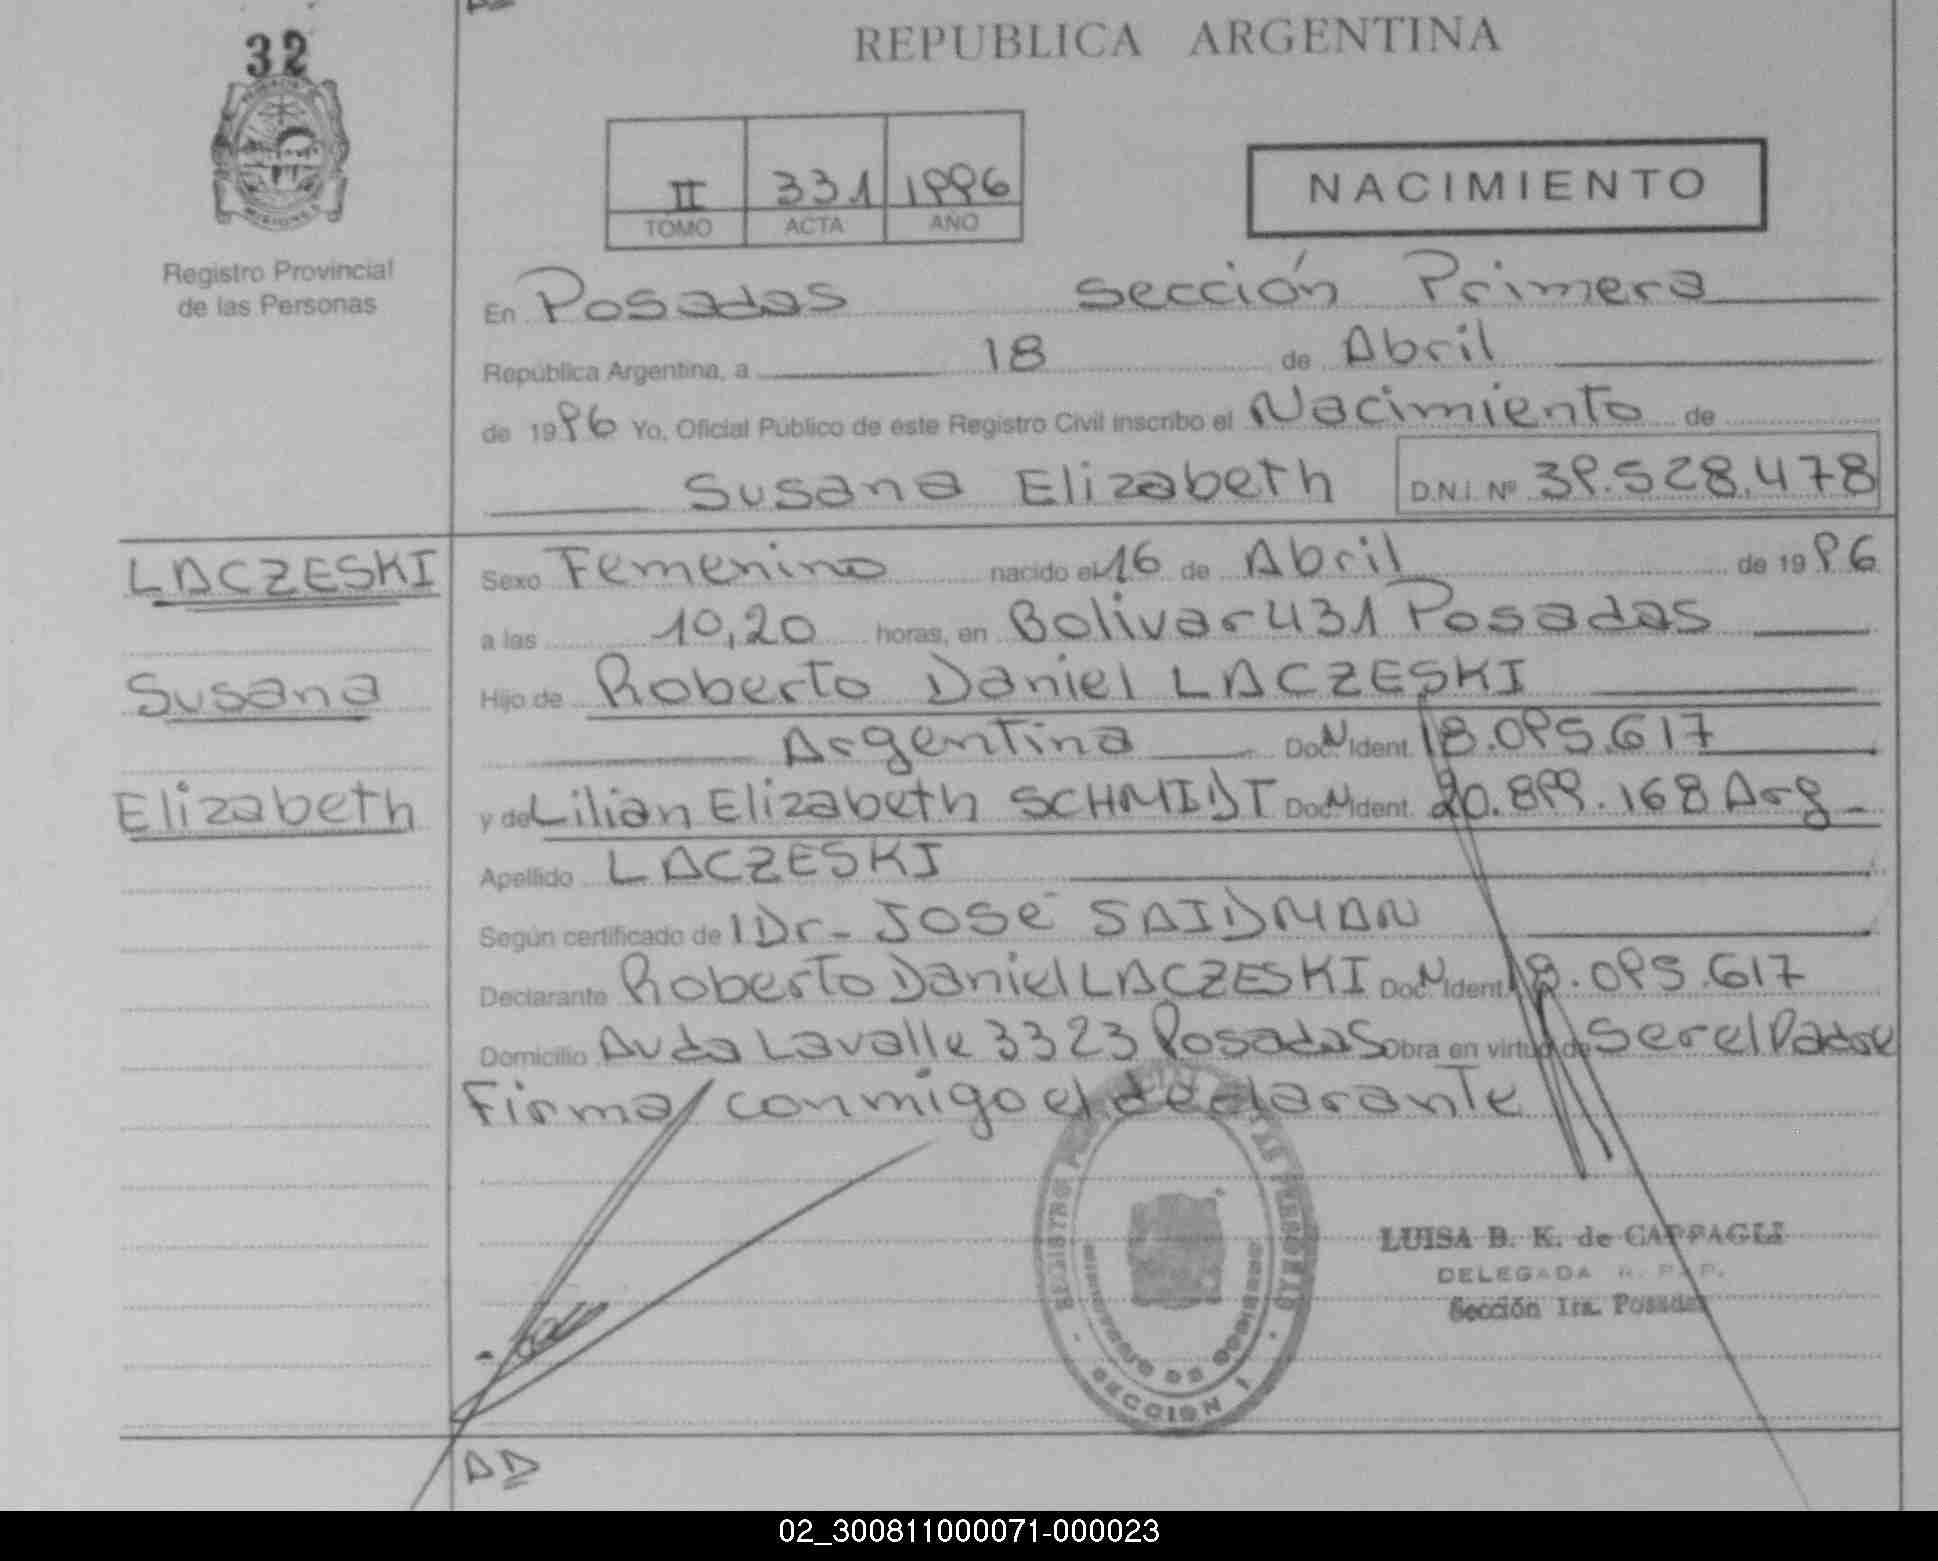 32
REPUBLICA ARGENTINA
II 331 1996
TOMO ACTA AÑO
NACIMIENTO
Registro Provincial
de las Personas
En Posadas sección Primera
República Argentina, a 18 de Abril
de 1996 Yo, Oficial Público de este Registro Civil inscribo el Nacimiento de
Susana Elizabeth D.N.I. Nº 39.528.478
LACZESKI
Susana
Elizabeth
Sexo Femenino nacido el 16 de Abril de 1996
a las 10,20 horas, en Bolivar 431 Posadas
Hijo de Roberto Daniel LACZESKI
Argentina Doc. N Ident. 18.095.617
y de Lilian Elizabeth SCHMIDT Doc. N Ident. 20.899.168 Arg
Apellido LACZESKI
Según certificado de l Dr- JOSÉ SAIDMAN
Declarante Roberto Daniel LACZESKI Doc. N Ident. 18.095.617
Domicilio Avda Lavalle 3323 Posadas Obra en virtud de ser el Padre
Firma conmigo el declarante
REGISTRO PROVINCIAL DE LAS PERSONAS
MINISTERIO DE GOBIERNO
- SECCION 1 -
LUISA B. K. de CAPPAGLI
DELEGADA R. P. P.
Sección 1ra. Posadas
AD
02_300811000071-000023